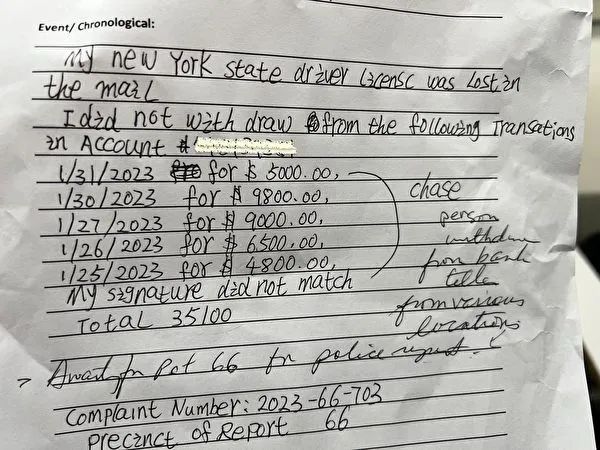 Event/ Chronological:
My new York state driver License was lost in
the mail
I did not with draw from the following Transations
in Account #
1/31/2023 for $ 5000.00,
1/30/2023 for $ 9800.00,
1/27/2023 for $ 9000.00,
1/26/2023 for $ 6500.00,
1/25/2023 for $ 4800.00,
My signature did not match
Total 35100
chase
person
withdrew
from bank
teller
from various
locations
Pct 66 for police report.
Complaint Number: 2023-66-703
Precinct of Report 66